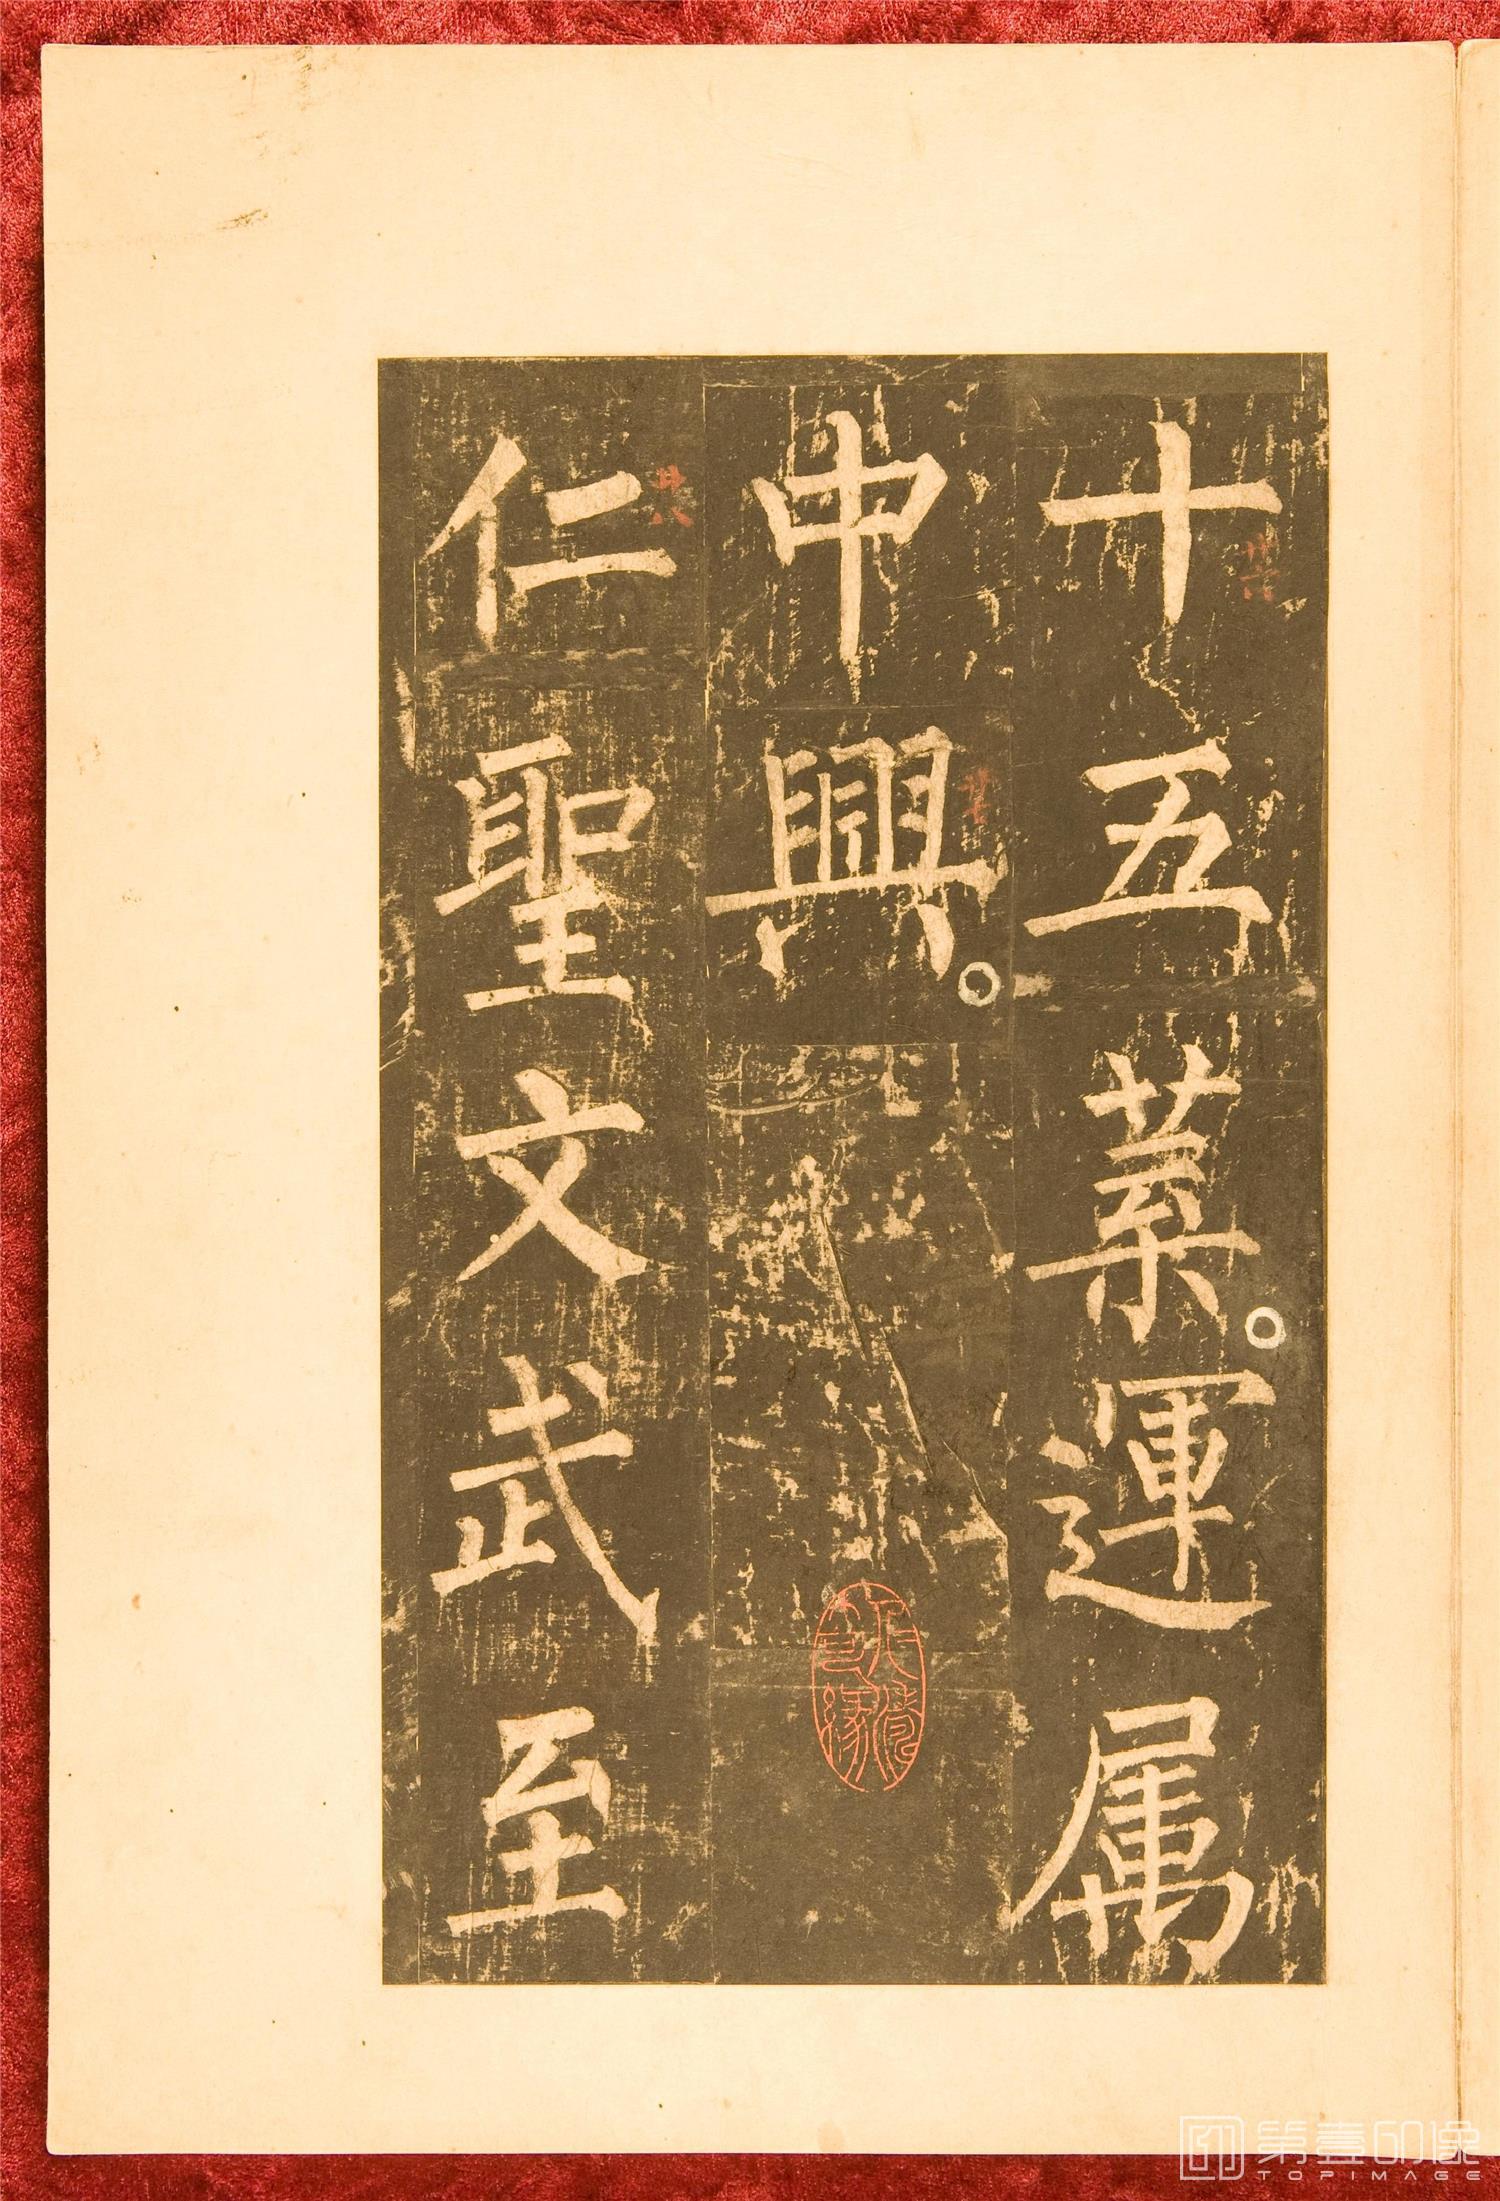 十五葉運属
中興
仁聖文武至
第壹印像
TOPIMAGE